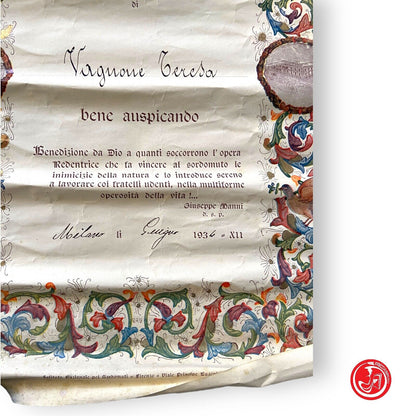 di
Vagnone Teresa
bene auspicando
Benedizione da Dio a quanti soccorrono l'opera
Redentrice che fa vincere al sordomuto le
inimicizie della natura e lo introduce sereno
a lavorare coi fratelli udenti, nella multiforme
operosità della vita!...
Giuseppe Manni
d. s. p.
Milano li Giugno 1934 - XII
Istituto Nazionale pei Sordomuti - Firenze - Viale Principe